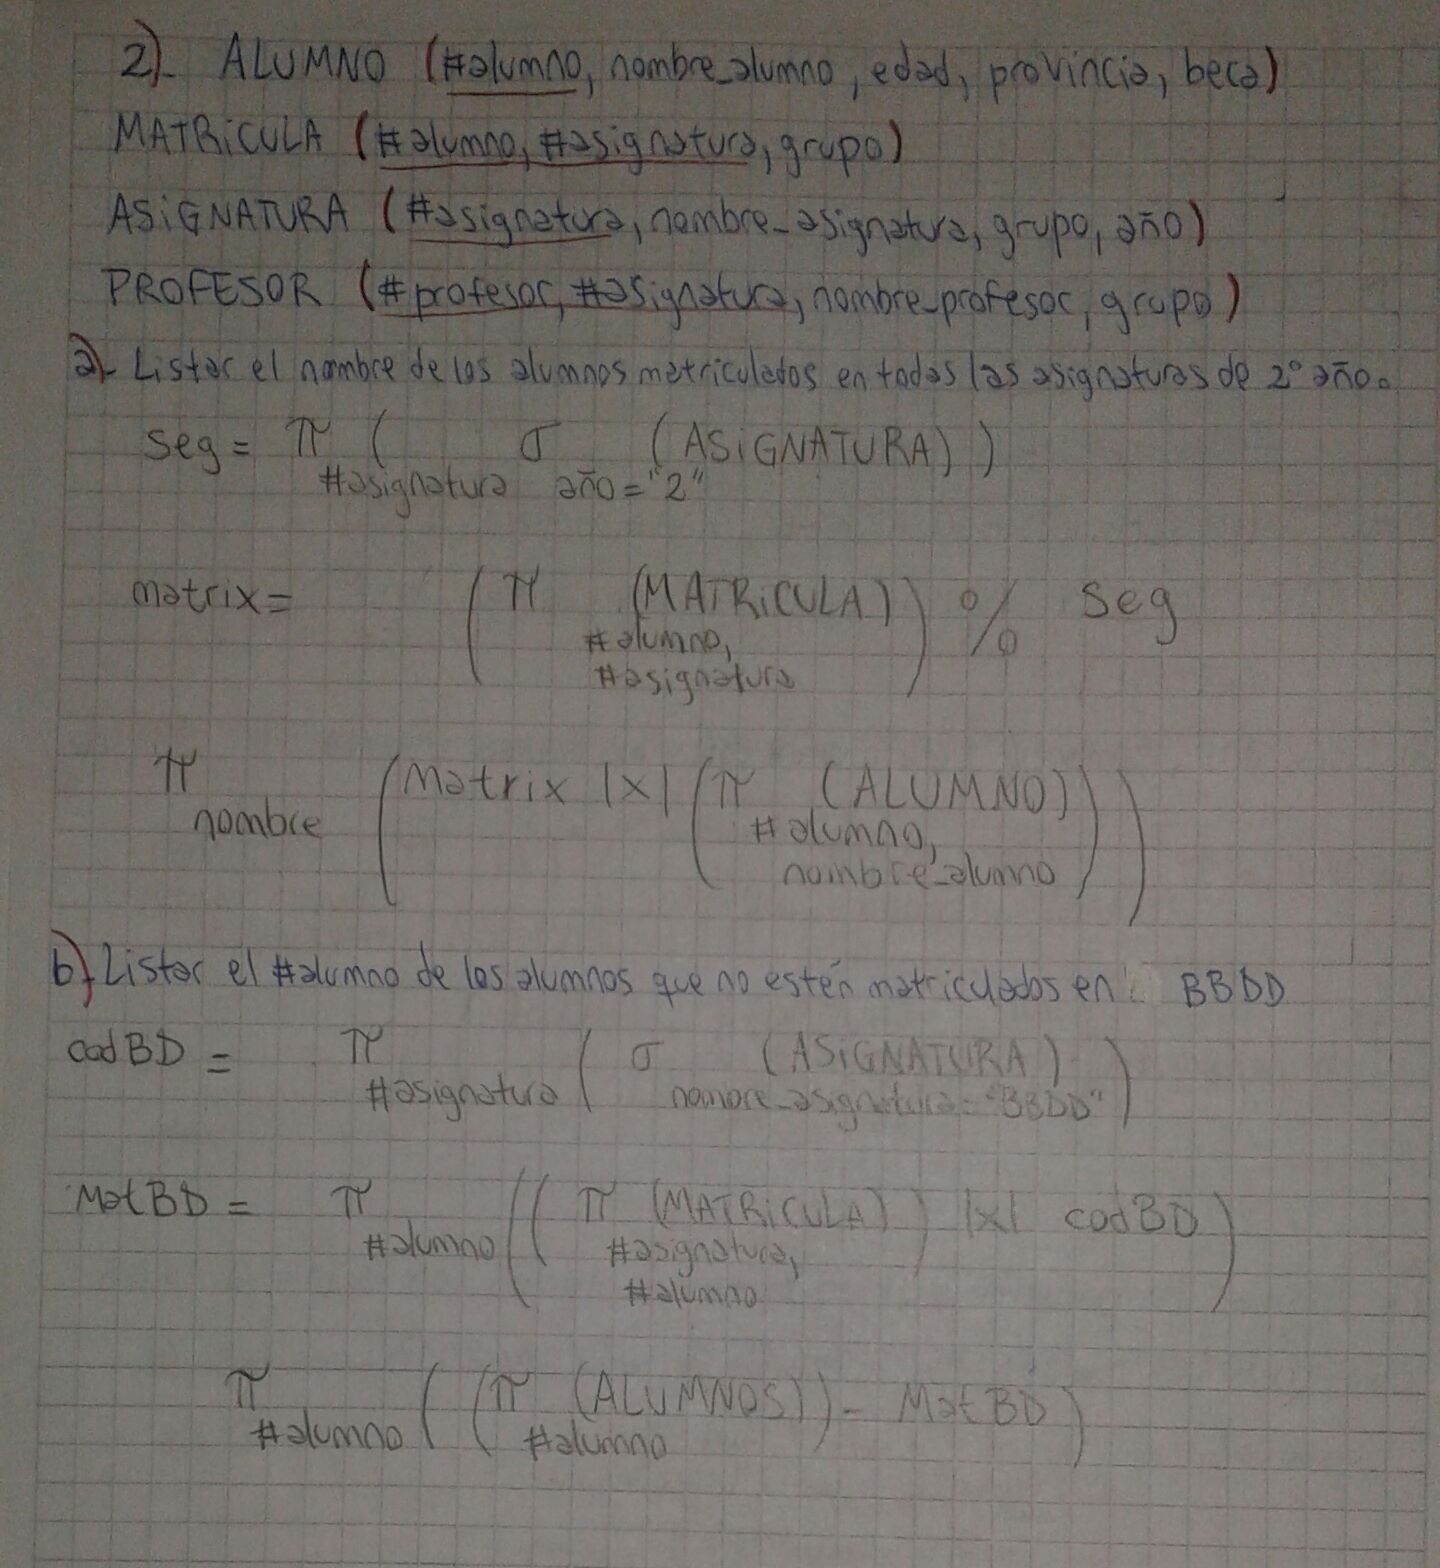 2). ALUMNO (#alumno, nombre_alumno, edad, provincia, beca)
MATRÍCULA (#alumno, #asignatura, grupo)
ASIGNATURA (#asignatura, nombre_asignatura, grupo, año)
PROFESOR (#profesor, #asignatura, nombre_profesor, grupo)
a). Listar el nombre de los alumnos matriculados en todas las asignaturas de 2º año.
seg = π ( σ (ASIGNATURA) )
#asignatura año = "2"
matrix = ( π (MATRÍCULA) ) % seg
#alumno,
#asignatura
π ( Matrix |X| ( π (ALUMNO) ) )
nombre #alumno,
nombre_alumno
b). Listar el #alumno de los alumnos que no estén matriculados en BBDD
codBD = π ( σ (ASIGNATURA) )
#asignatura nombre_asignatura = "BBDD"
MatBD = π ( ( π (MATRÍCULA) ) |x| codBD )
#alumno #asignatura,
#alumno
π ( ( π (ALUMNOS) ) - MatBD )
#alumno #alumno